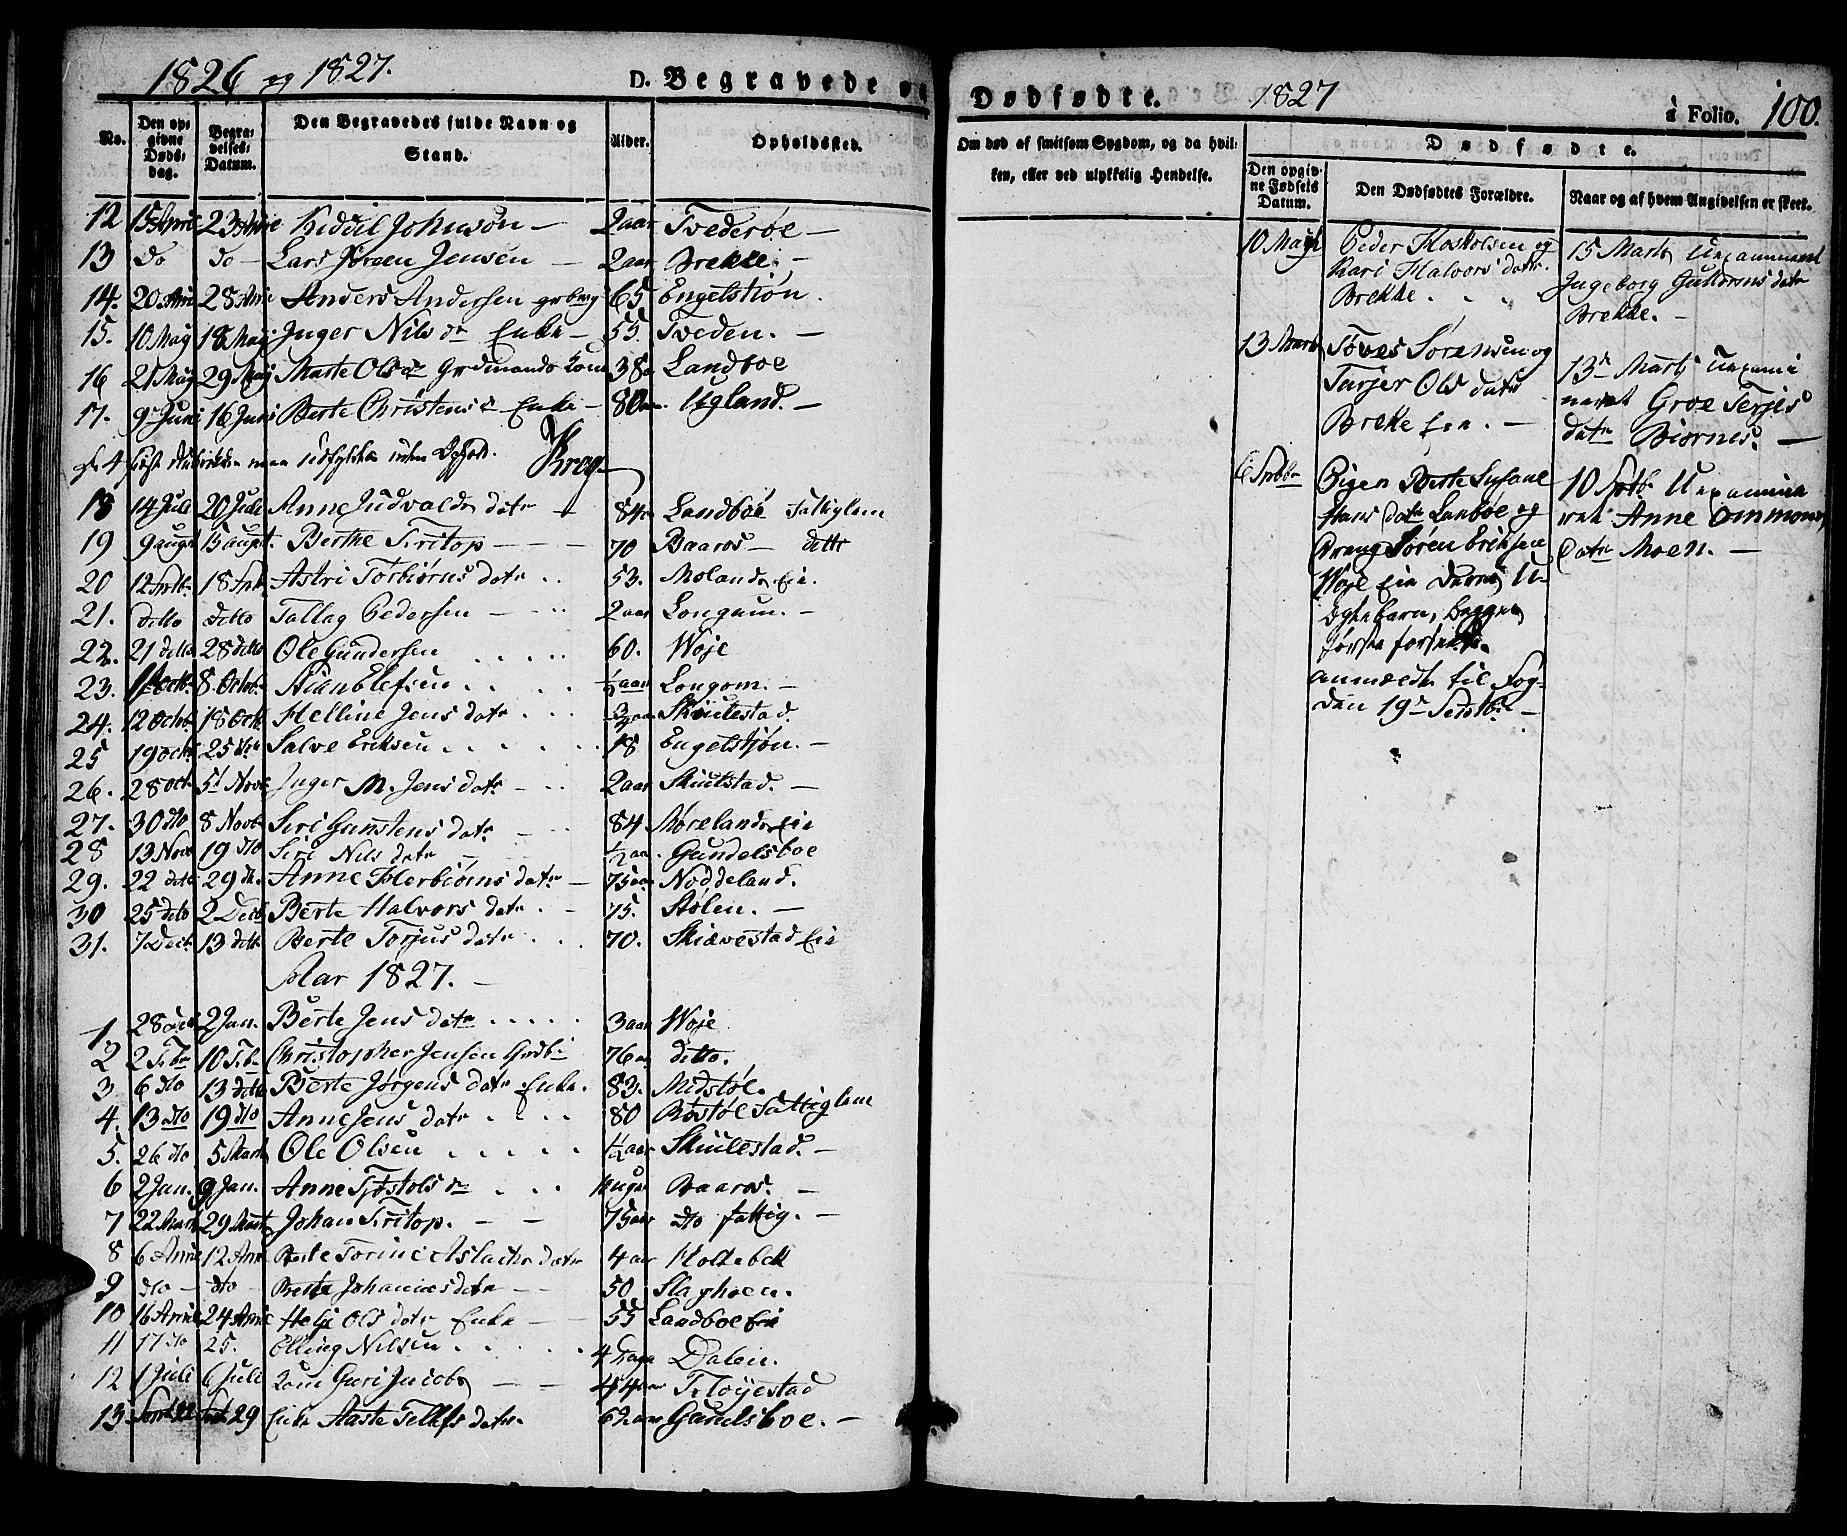 1826 og 1827.
D. Begravede og
No.
Den op=
givne
Døds=
dag.
Begra=
velses=
Datum.
Den Begravedes fulde Navn og
Stand.
Alder.
Opholdssted.
12 15 April 23 April Kiddil Johnson — 2 aar Tvederøe —
13 do do — Lars Jørgen Jensen — 2 aar Brekke. —
14. 20 April 28 April Anders Andersen 65 Engelstiøn.
15. 10 May 18 May Inger Nils dr Enke — 55. Tveden. —
16 21 May 29 May Marte Ols dr Grdmands Kone 38 Landboe
17. 9 Juni 16 Juni Berte Christens dr Enke — 80 Ugland. —
Krog
18 14 Juli 20 Juli Anne Judvalds datr — 84 Landbøe Fattiglem
19 9 augst 15 augst. Berthe Tiritop — — — 70 Baaros — ditto
20 12 Septb. 18 Sept Astri Torbiørns datr . . 53. Molands Eie.
21. ditto ditto Tallag Pedersen — 2 aar Longum. —
22. 21 ditto 28 ditto Ole Gundersen . . . . . 60. Woje
23. Octb. 8. Octob. Stian Elefsen . . . . 1/2 aar Longom. —
24. 12 Octb. 18 Octb Helline Jens datr . . . Skiulestad.
25 19 Octb 25 Salve Eriksen . . . . . . 18 Engelstjøn. —
26. 28 Oct. 5t Novb Inger M. Jens datr — . . 2 aar Skiulstad. —
27. 30 dto 8 Novb Siri Gunstens datr — . . 84 Mørelands Eie
28 13 Nov 19 dto Siri Nils datr — 1/2 aar. Gundelsboe
29. 22 ditto 29 do. Anne Herbiørns datr — 75 aar Noddeland.
30 25 dito 2 Decb Berte Halvors datr . — 75. Stølen. —
31. 7 Decb. 13 ditto Berte Torjus datr . . . 70. Skiævestad Eie
Aar 1827. —
1. 28 Dec 2 Jan. Berte Jens datr . . . . . 3 aar Woje
2 2 Febr 10 Feb. Christopher Jensen Grdb. 76 ditto.
3 6 dto 13 ditto Berte Jørgens datr Enke. 83. Midstøe.
4. 13 dto 19 dto Anne Jens datr . . . . 80 Rostøe Fattiglem
5. 26 dto 5 Marts Ole Olsen . . . . . 1/2 aar Skiulestad. —
6 2 Jan. 9 Jan. Anne Tjøstols dr . . . uger Baaros. —
7 22 Marts 29 Marts Johan Tiritop. — — 75 aar dto fattig. —
8 6 April 12 April Berte Torine Aslachs datr 4 aar Holtebek
9 dto — dto Berte Johannes datr — — 50 Slaghoen.
10 16 April 24 April Helje Ols datr Enke — — 55 Landboe Eie
11 17 do 25. Elling Nilsen . . . . . 4 Dage Dalen.
12 1 Juli 6 Juli Kone Guri Jacobs — — 44 aar Trloyestad
13 Sept 22 Sept 29 Enke Aaste Tellefs datr. 62 aar Gundelsboe. —
Dødfødte. 1827 à Folio. 100.
Om død af smitsom Sygdom, og da hvil=
ken, eller ved ulykkelig Hendelse.
Dødfødte.
Den opgiv=
ne Fødsels
Datum.
Den Dødfødtes Forældre.
Naar og af hvem Angivelsen er skeet.
10 Peder Hoskolsen og
Kari Halvors datr.
Brekke. . .
15 Marts Unexamineret
Ingeborg Guttorms datr
Brekke. —
13 Marts Toves Sørensen og
Turjer Ols datr
Brekke Eie. —
13de Marts Unexami
neret Groe Terjes
datr Biørnes. —
6 Septbr Pigen Berte Susane
Hans datr Lanbøe og
Dreng Søren Eriksen
Woje Eie Deres U=
ægte barn, begges
første forseelse.
anmældt til Fog=
den 19de Septbr. —
10 Septb Unexamine
ret Anne Ommons
datr Moen. —